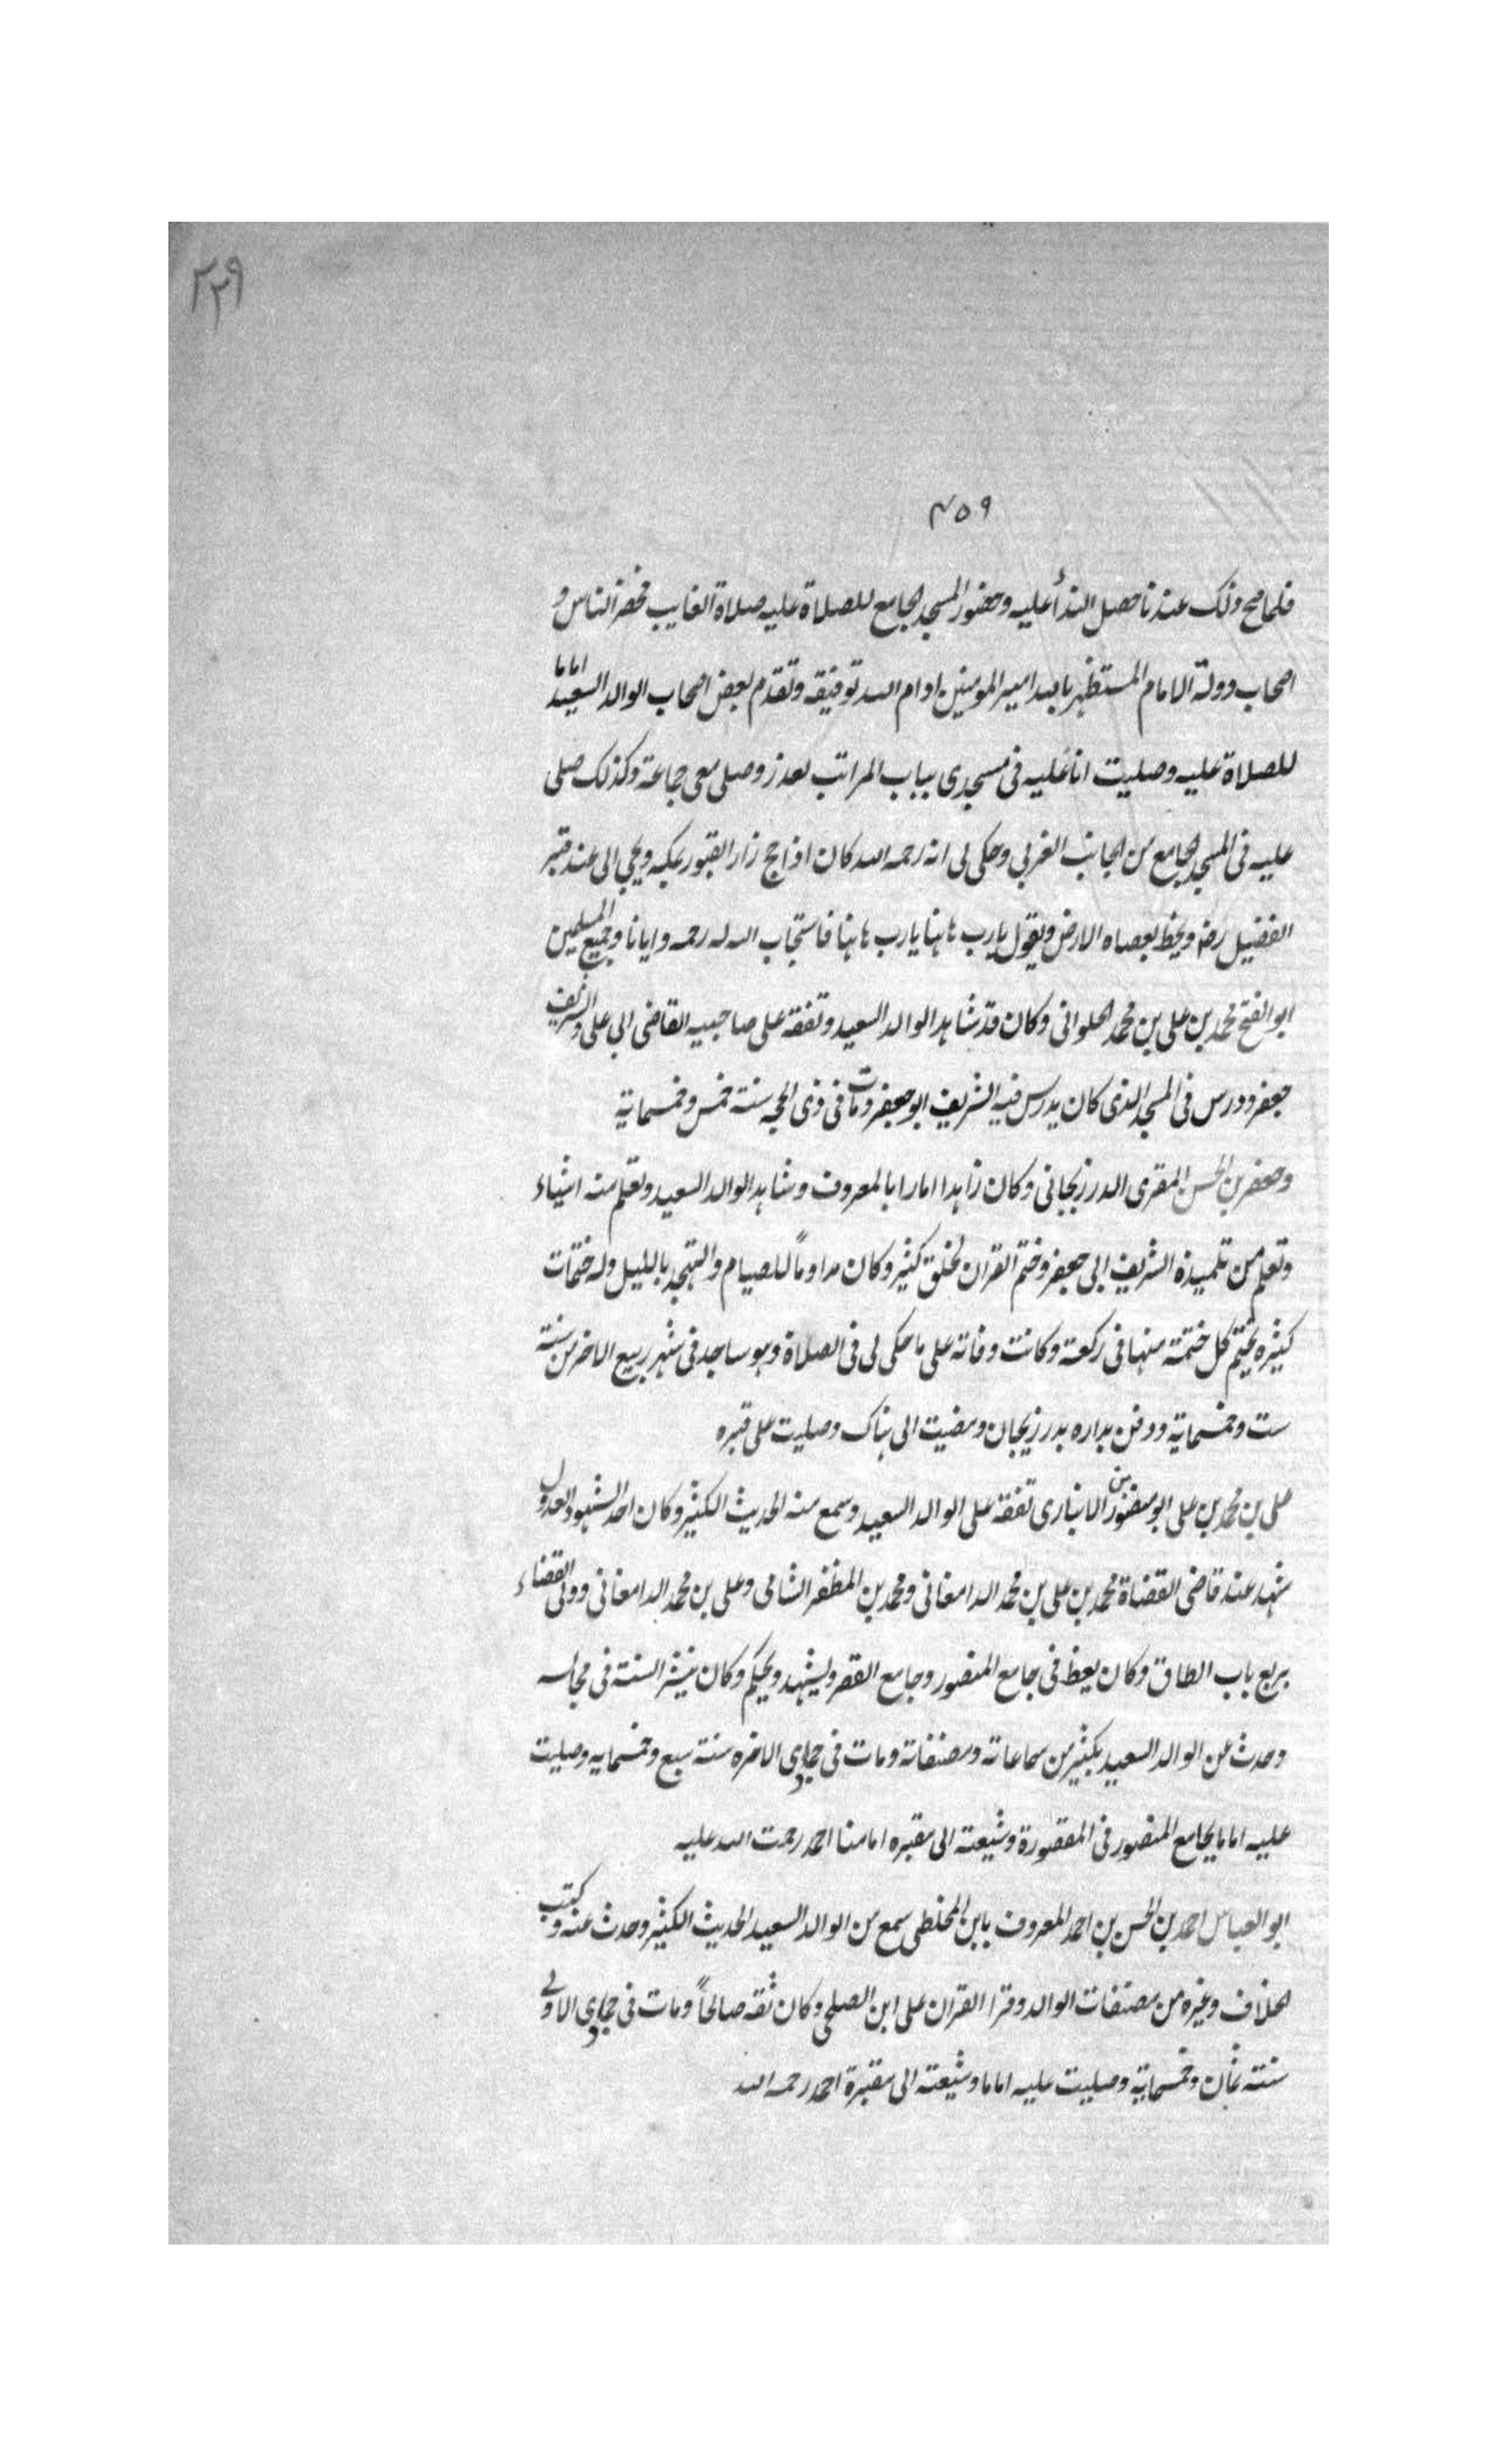 ٢٢٩
٤٥٩
فلما صح ذلك عندنا حصل الندأ عليه وحضور المسجد الجامع للصلاة عليه صلاة الغايب فحضر الناس و
اصحاب دولة الامام المستظهر بالله امير المومنين ادام الله توفيقه وتقدم بعض اصحاب الوالد السعيد اماما
للصلاة عليه وصليت انا عليه فى مسجدى بباب المراتب لعذر وصلى معى جماعة وكذلك صلى
عليه فى المسجد الجامع من الجانب الغربي وحكى لى انه رحمه الله كان اذا حج زار القبور بمكه ويجي الى عند قبر
الفضيل رضه ويخط بعصاه الارض ويقول يارب هاهنا يارب هاهنا فاستجاب الله له رحمه وايانا وجميع المسلمين
ابو الفتح محمد بن على بن محمد الحلوانى وكان قد شاهد الوالد السعيد وتفقه على صاحبيه القاضى ابي على والشريف
جعفر ودرس فى المسجد الذى كان يدرس فيه الشريف ابو جعفر ومات فى ذى الحجه سنة خمس وخمسماية
وجعفر بن الحسن المقرى الدرزيجانى وكان زاهدا امارا بالمعروف وشاهد الوالد السعيد وتعلم منه اشياء
وتعلم من تلميذه الشريف ابى جعفر وختم القران لخلق كثير وكان مداوماً للصيام والتهجد بالليل وله ختمات
كثيره يختم كل ختمة منها فى ركعة وكانت وفاته على ما حكى لى فى الصلاة وهو ساجد فى شهر ربيع الاخر من سنة
ست وخمسماية ودفن بداره بدرزيجان ومضيت الى هناك وصليت على قبره
على بن محمد بن على ابو منصور بن الانبارى تفقه على الوالد السعيد وسمع منه الحديث الكثير وكان احد الشهود العدول
شهد عند قاضى القضاة محمد بن على بن محمد الدامغانى ومحمد بن المظفر الشامى وعلى بن محمد الدامغانى وولى القضاء
بربع باب الطاق وكان يعظ فى جامع المنصور وجامع القصر وليشهد ويحكم وكان ينشر السنة فى مجالسه
وحدث عن الوالد السعيد بكثير من سماعاته ومصنفاته ومات فى جمادى الاخره سنة سبع وخمسمايه وصليت
عليه اماما بجامع المنصور فى المقصورة وشيعته الى مقبره امامنا احمد رحمت الله عليه
ابو العباس احمد بن الحسن بن احمد المعروف بابن المخلطى سمع من الوالد السعيد الحديث الكثير وحدث عنه وكتب
الخلاف وغيره من مصنفات الوالد وقرا القران على ابن الصلحى وكان ثقه صالحاً ومات فى جمادى الاولى
سنة ثمان وخمسماية وصليت عليه اماما وشيعته الى مقبرة احمد رحمه الله